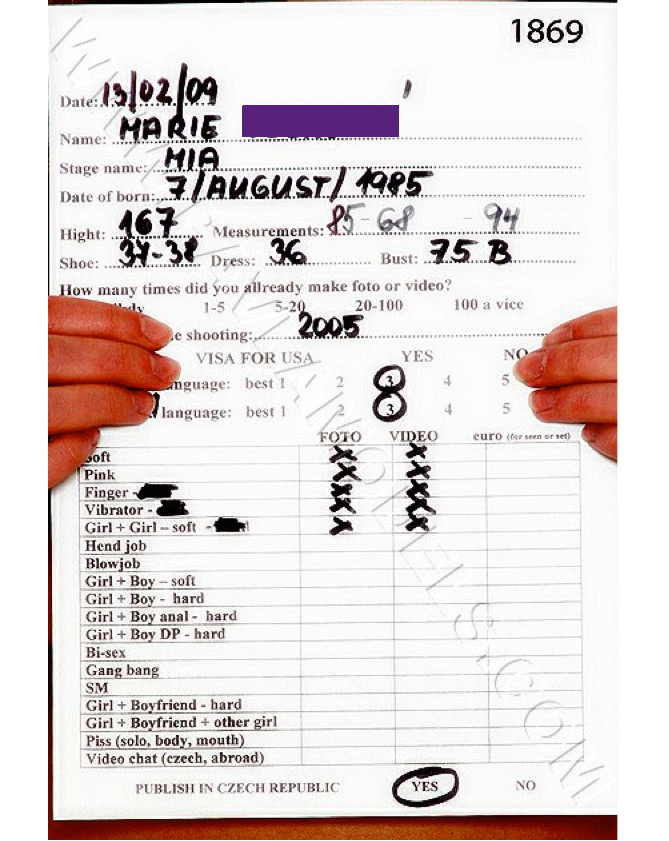 1869
Date: 13/02/09
Name: MARIE
Stage name: MIA
Date of born: 7/AUGUST/1985
Hight: 167 Measurements: 85-68 - 94
Shoe: 37-38 Dress: 36 Bust: 75 B
How many times did you allready make foto or video?
1-5 5-20 20-100 100 a vice
shooting: 2005
VISA FOR USA YES NO
language: best 1 2 3 4 5
language: best 1 2 3 4 5
FOTO VIDEO euro (for seen or set)
Soft X X
Pink X X
Finger - X X
Vibrator - X X
Girl + Girl – soft - X X
Hend job
Blowjob
Girl + Boy – soft
Girl + Boy - hard
Girl + Boy anal - hard
Girl + Boy DP - hard
Bi-sex
Gang bang
SM
Girl + Boyfriend - hard
Girl + Boyfriend + other girl
Piss (solo, body, mouth)
Video chat (czech, abroad)
PUBLISH IN CZECH REPUBLIC YES NO